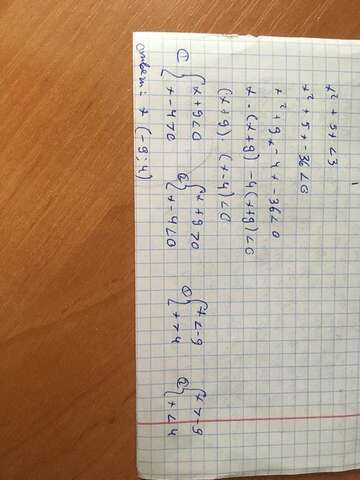 x² + 5x < 3
x² + 5x - 36 < 0
x² + 9x - 4x - 36 < 0
x · (x+9) - 4(x+9) < 0
(x+9) · (x-4) < 0
① { x+9 < 0 ② { x+9 > 0 ① { x < -9 ② { x > -9
x-4 > 0 x-4 < 0 x > 4 x < 4
ответ: x (-9; 4)